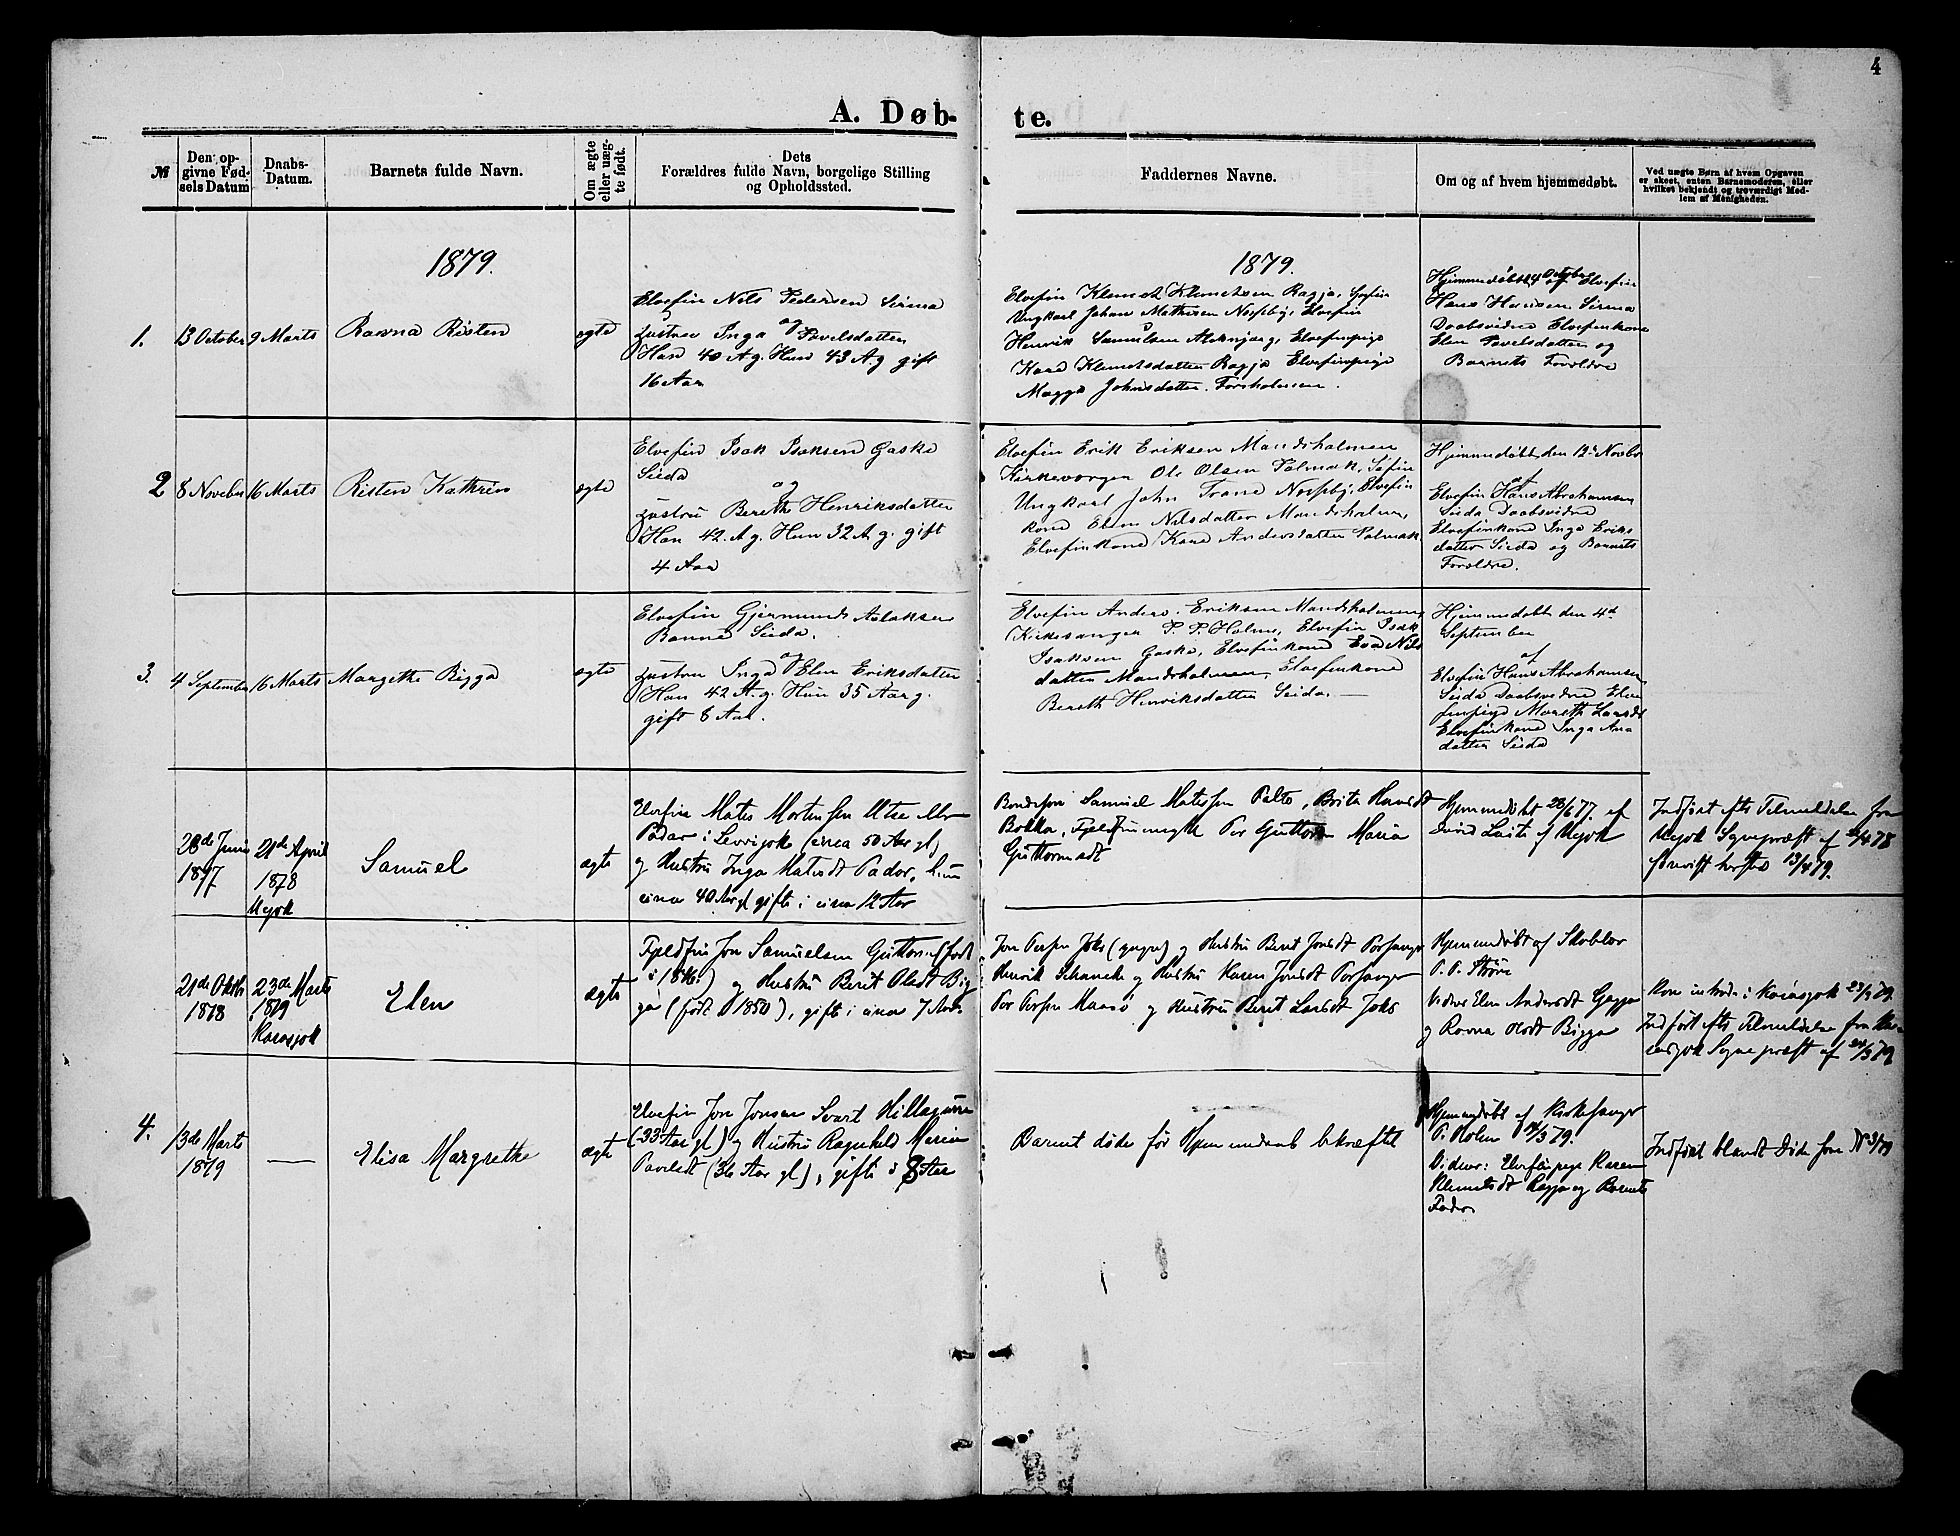 4
A. Døb-
te.
№
Den op-
givne Fød-
sels Datum
Daabs-
Datum.
Barnets fulde Navn.
Om ægte
eller uæg-
te født.
Dets
Forældres fulde Navn, borgelige Stilling
og Opholdssted.
Faddernes Navne.
Om og af hvem hjemmedøbt.
Ved uægte Børn af hvem Opgaven
er skeet, enten Barnemoderen, eller
hvilket bekjendt og troværdigt Med-
lem af Menigheden.
1879.
1879.
1.
13 October
9 Marts
Ravna Risten
ægte
Elvefin Nils Pedersen Sirma
og
Hustru Inga Povelsdatter
Han 40 A g. Hun 43 A g gift
16 Aar
Elvefin Klemet Klemetsen Ragja, Søfin
Ungkarl Johan Mathisen Næsseby, Elvefin
Henrik Samuelsen Elvefinpige
Kare Klemetsdatter Ragja Elvefinpige
Magga Johnsdatter. Forsholmen.
Hjemmedøbt 14 October
af Elvefin
Hans Hansen Sirma
Daabsvidne Elvefinkone
Elen Povelsdatter og
Barnets Forældre
2
8 November
16 Marts
Risten Kathrin
ægte
Elvefin Isak Isaksen Gaske
Sieda
og
Hustru Berethe Henriksdatter
Han 42. A g. Hun 32 A g. gift
4 Aar
Elvefin Erik Eriksen Mandsholmen
Kirkeværgen Ole Olsen Polmak, Søfin
Ungkarl John Trane Næsseby, Elvefin
kone Elen Nilsdatter Mandsholmen,
Elvefinkone Kare Andersdatter Polmak
Hjemmedøbt den 12te Novbr
af
Elvefin Hans Abrahamsen
Sieda Daabsvidne
Elvefinkone Inga Eriks
datter Sieda og Barnets
Forældre.
3.
4 September
16 Marts
Margethe Bigga
ægte
Elvefin Gjermund Aslaksen
Banne Sieda.
og
Hustru Inga Elen Eriksdatter
Han 42 A. g. Hun 35 Aar g.
gift 8 Aar.
Elvefin Anders Eriksen Mandsholmen,
Kirkesanger P. P. Holm, Elvefin Isak
Isaksen Gaske, Elvefinkone Eva Nils
datter Mandsholmen, Elvefinkone
Bereth Henriksdatter Sieda.
Hjemmedøbt den 4de
September
af
Elvefin Hans Abrahamsen
Sieda Daabsvidne Elve
finpige Mareth Larsdt
Elvefinkone Inga
datter Sieda
28de Juni
1877
21de April
1878
Utsjok
Samuel
ægte
Elvefin Mates Mortensen Utse eller
Pador i Levvijok (circa 50 Aar gl)
og Hustru Inga Matisdt Pador, hun
circa 40 Aar gl gifte i circa 12 Aar
Samuel Matissen Palto, Brita Hansdt
Per Guttorm Maria
Guttormsdt
Hjemmedøbt 28/6 77. af
Utsjok
Indført efter Tilmeldelse fra
Utsjok Sognepræst af /4 78
13/4 79.
21de Oktbr
1878
23de Marts
1879
Karasjok
Elen
ægte
Fjeldfin Jon Samuelsen Guttorm (født
i 1846) og Hustru Berit Olsdt Big
ga (født 1850), gift i circa 7 Aar
Jon Persen Joks (yngre) og Hustru Berit Jonsdt Porsanger
Henrik Schancke og Hustru Karen Jonsdt Porsanger
Per Persen Maasø og Hustru Berit Larsdt Joks
Hjemmedøbt af Skolelær
O. P. Strøm
Vidner Elen Andersdt Gagga
og Ravna Olsdt Bigga
Kone introd. i Karasjok 23/3 79.
Indført efter Tilmeldelse fra Ka-
rasjok Sognepræst af 24/3 79
4.
13de Marts
1879
—
Elisa Margrethe
ægte
Elvefin Jon Jonsen Svart Hillagurra
(33 Aar gl) og Hustru Ragnhild Maria
Povelsdt (36 Aar gl), gifte i 8 Aar
Barnet døde før Hjemmedaab bekræftet
Hjemmedøbt af Kirkesanger
P. Holm /3 79.
Vidner: Elvefinpige Karen
Klemetsdt Ragja og Barnets
Fader
Indført blandt Døde som N 3/79